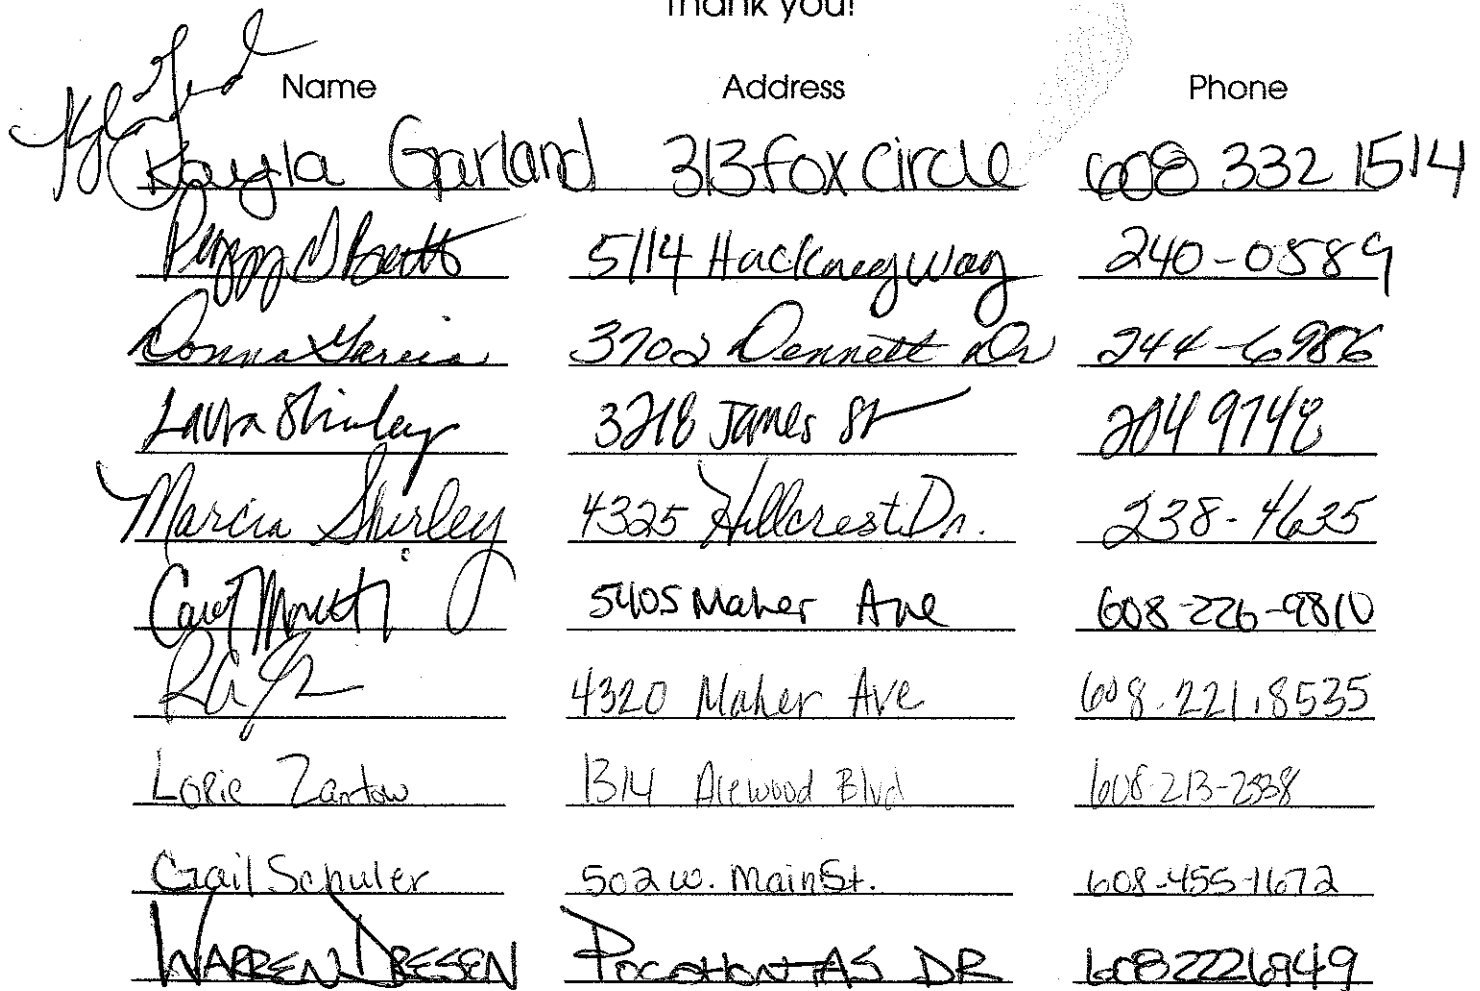 Thank you!
Name Address Phone
Kayla Garland 313 Fox Circle 608 332 1514
Peggy 5114 Hackney Way 240-0589
Donna Garcia 3702 Dennett Dr 244-6986
Laura Shirley 3218 James St 204 9748
Marcia Shirley 4325 Hillcrest Dr. 238-4635
5405 Maher Ave 608-226-9810
4320 Maher Ave 608.221.8535
Lorie Zantow 1314 Blvd 608-213-2938
Gail Schuler 502 W. Main St. 608-455-1672
WARREN DRESEN POCAHONTAS DR 6082226949